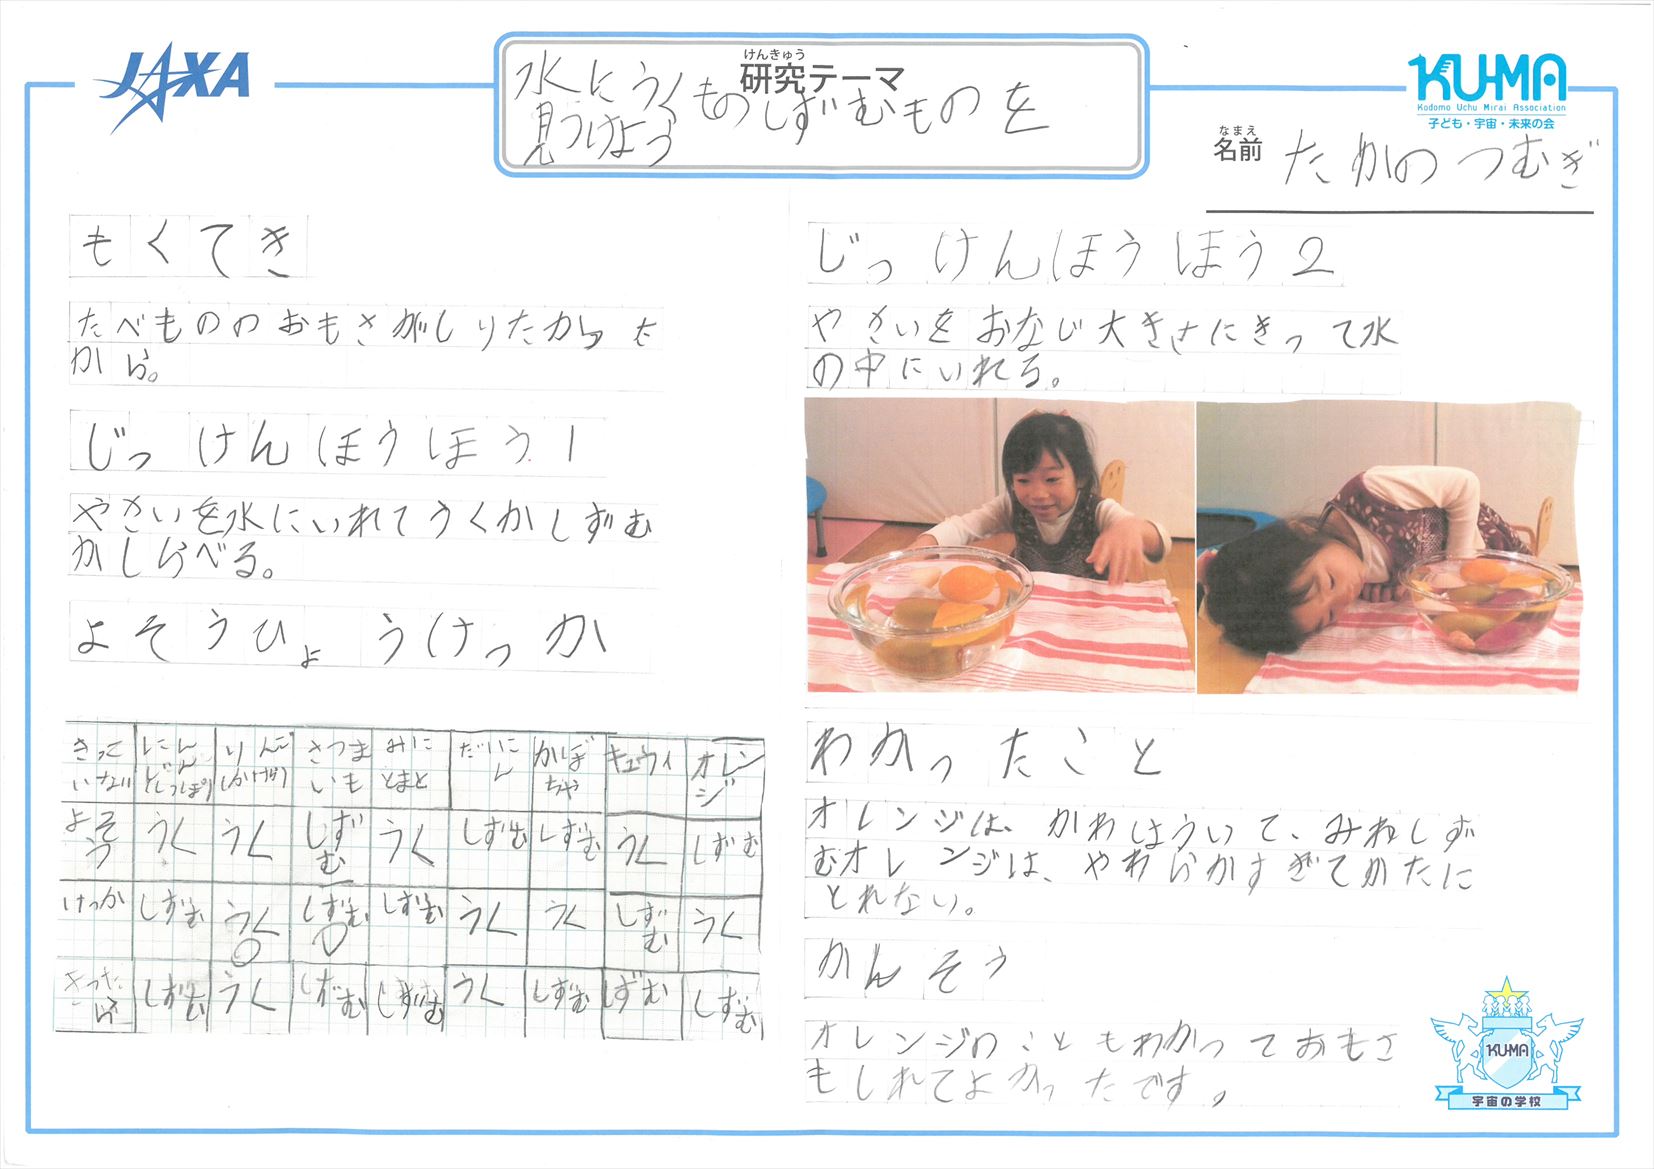 JAXA
けんきゅう
研究テーマ
水にうくものしずむものを
見つけよう
KU-MA
Kodomo Uchu Mirai Association
子ども・宇宙・未来の会
なまえ
名前 たかの つむぎ
もくてき
たべもののおもさがしりたかった
から。
じっけんほうほう1
やさいを水にいれてうくかしずむ
かしらべる。
よそうひょうけっか
きって いない にんじん(しっぽ) りんご さつまいも みにとまと だいこん かぼちゃ キュウィ オレンジ
よそう うく うく しずむ うく しずむ しずむ うく しずむ
けっか しずむ うく しずむ しずむ うく うく しずむ うく
きったら しずむ うく しずむ しずむ うく しずむ しずむ しずむ
じっけんほうほう2
やさいをおなじ大きさにきって水
の中にいれる。
わかったこと
オレンジは、かわはういて、みわしず
むオレンジは、やわらかすぎてかたに
とれない。
かんそう
オレンジのこともわかっておもさ
もしれてよかったです。
KU-MA
宇宙の学校